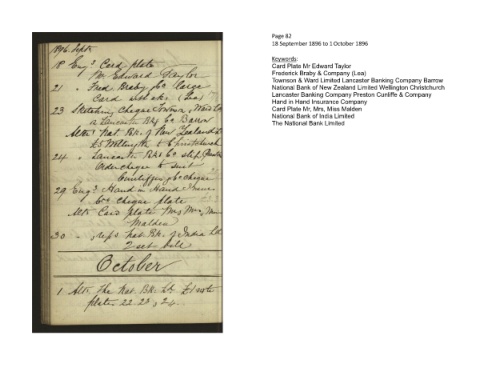 1896 Septr
18 Engg Card plate
Mr Edward Taylor
21 " Fred Braby & Co large
Card (Lea)
23 Sketching Cheque Townson & Ward Ld
a Lancastr Bkg Co Barrow
Altg Nat Bk. of New Zealand Ld
£5 Wellington & Christchurch
24 " Lancastr Bkg Co slip Preston
Order cheque to suit
Cunliffe & Co cheque
29 Engg Hand in Hand Insce
Co cheque plate
Altg Card plate Mr, Mrs, Miss
Malden
30 " Nat Bk. of India Ld
bill
October
1 Altg The Nat. Bk. Ld £1 note
plate 22. 23, 24.
Page 82
18 September 1896 to 1 October 1896
Keywords:
Card Plate Mr Edward Taylor
Frederick Braby & Company (Lea)
Townson & Ward Limited Lancaster Banking Company Barrow
National Bank of New Zealand Limited Wellington Christchurch
Lancaster Banking Company Preston Cunliffe & Company
Hand in Hand Insurance Company
Card Plate Mr, Mrs, Miss Malden
National Bank of India Limited
The National Bank Limited